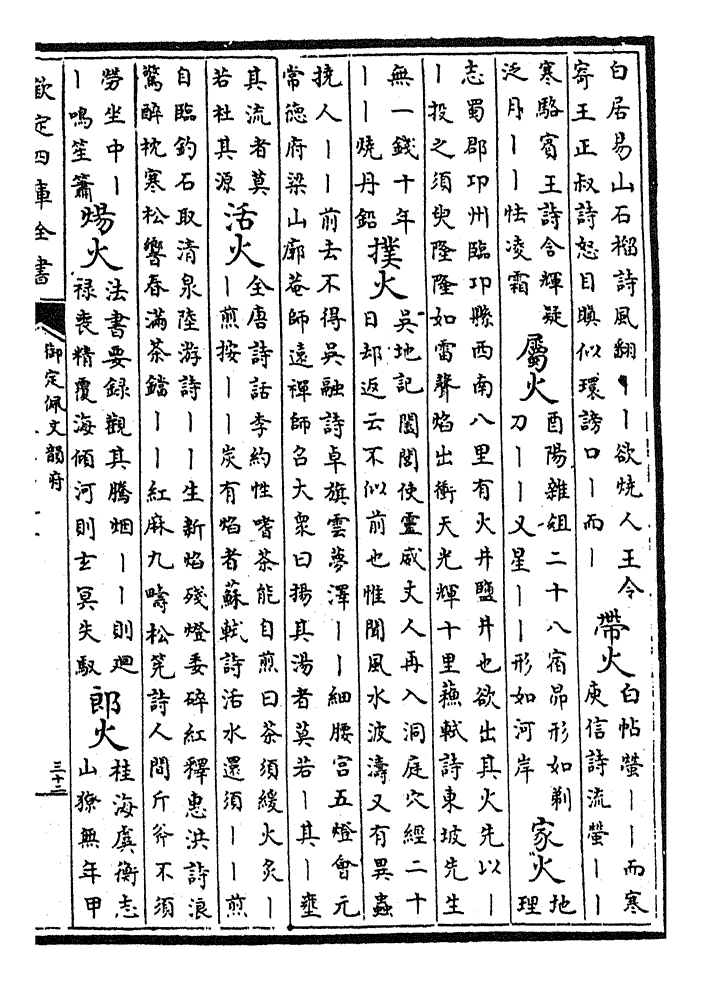 白居易山石榴詩風翻丨丨欲燒人王令
寄王正叔詩怒目瞋似環謗口丨而丨
帶火
白帖螢丨丨而寒
庾信詩流螢丨丨
寒駱賓王詩含輝疑
泛月丨丨怯凌霜
屬火
酉陽雜俎二十八宿昴形如剃
刀丨丨又星丨丨形如河岸
家火
地
理
志蜀郡卭州臨卭縣西南八里有火井鹽井也欲出其火先以丨
丨投之須臾隆隆如雷聲焰出衝天光輝十里蘓軾詩東坡先生
無一錢十年
丨丨燒丹鉛
撲火
吳地記闔閭使靈威丈人再入洞庭穴經二十
日却返云不似前也惟聞風水波濤又有異蟲
撓人丨丨前去不得吳融詩卓旗雲夢澤丨丨細腰宮五燈會元
常德府梁山廓菴師遠禪師名大衆曰揚其湯者莫若丨其丨壅
其流者莫
若杜其源
活火
全唐詩話李約性嗜茶能自煎曰茶須緩火炙丨
丨煎按丨丨炭有焰者蘇軾詩活水還須丨丨煎
自臨釣石取清泉陸游詩丨丨生新焰殘燈委碎紅釋惠洪詩浪
驚醉枕寒松響春滿茶鐺丨丨紅麻九疇松筅詩人間斤斧不須
勞坐中丨
丨鳴笙簫
煬火
法書要錄觀其騰烟丨丨則廻
祿喪精覆海傾河則玄冥失馭
郎火
桂海虞衡志
山獠無年甲
欽定四庫全書
御定佩文韻府
三十二